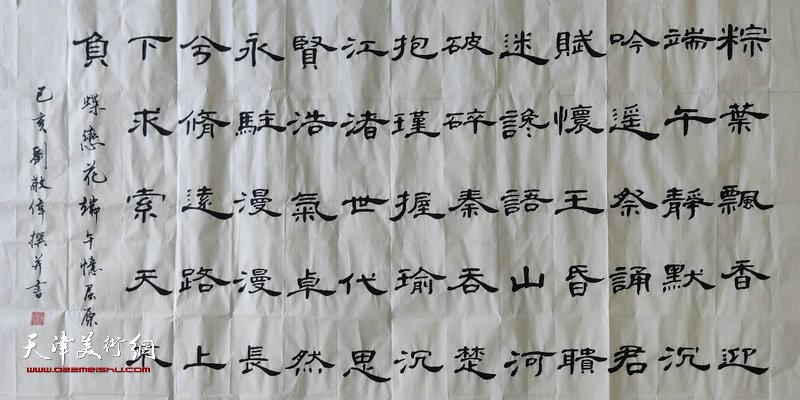 粽葉飄香迎
端午靜默沉
吟遥祭誦君
賦懷王昏聵
迷讒語山河
破碎秦吞楚
抱瑾握瑜沉
江渚世代思
賢浩氣卓然
永駐漫漫長
兮脩遠路上
下求索天不
負
蝶戀花端午憶屈原
己亥劉敬偉撰并書
天津美術網
www.022meishu.com